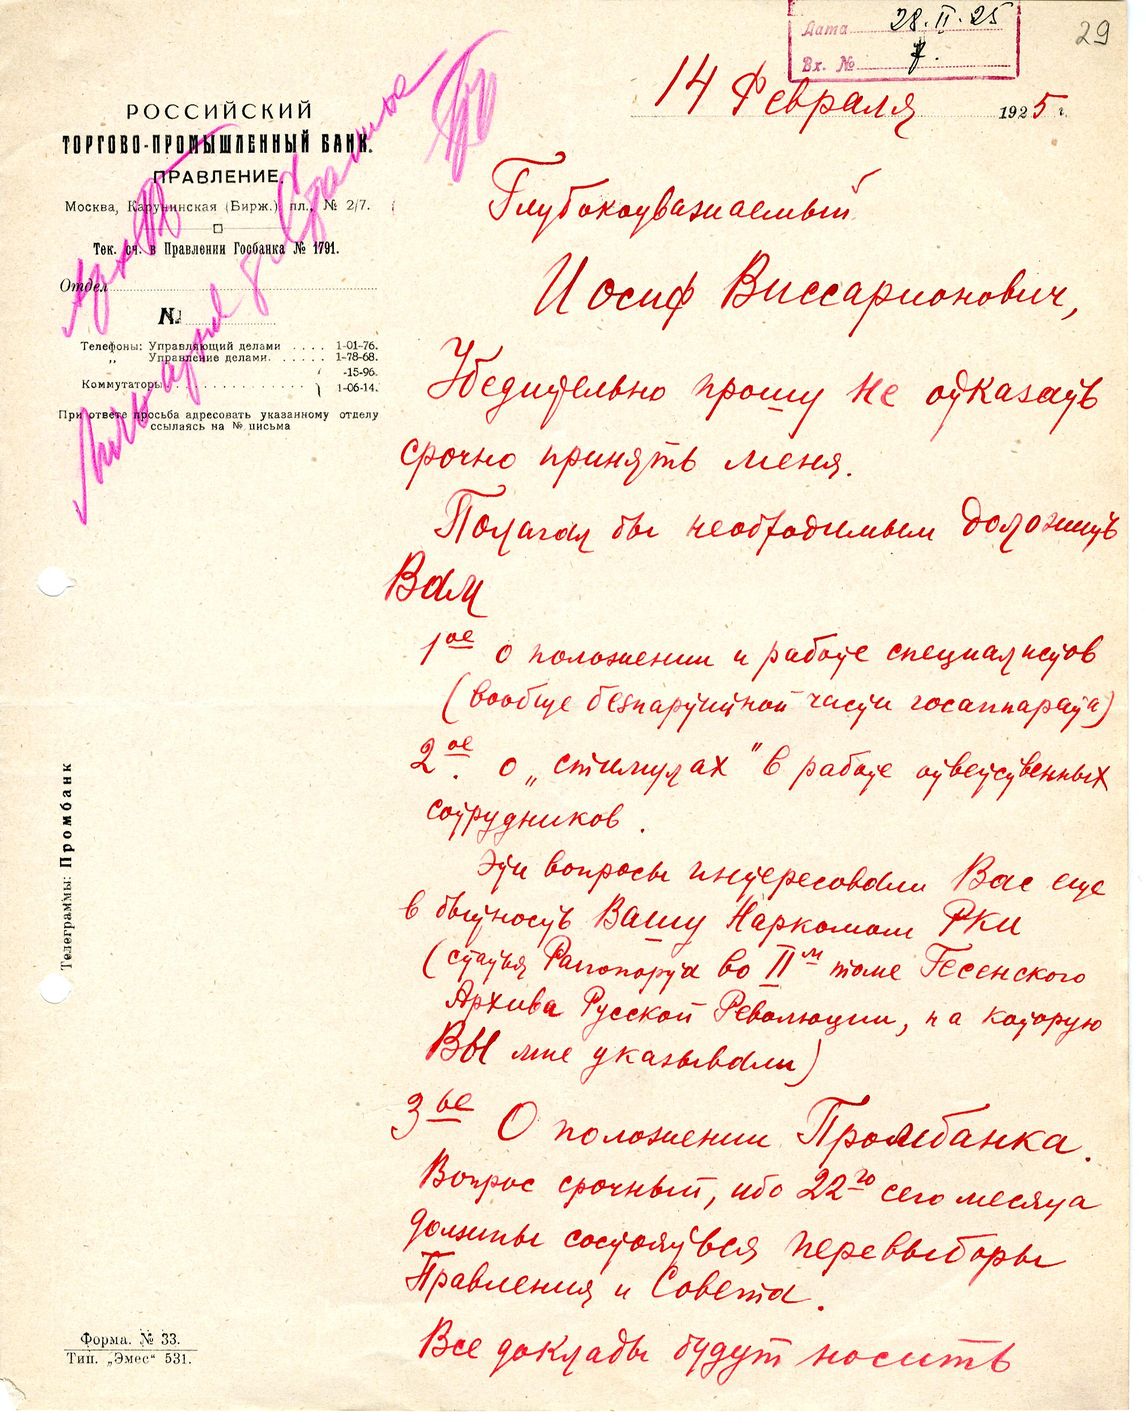 Дата 28.II.25
Вх. № 7.
29
РОССИЙСКИЙ
ТОРГОВО-ПРОМЫШЛЕННЫЙ БАНК.
ПРАВЛЕНИЕ.
Москва, Карунинская (Бирж.) пл., № 2/7.
Тек. сч. в Правлении Госбанка № 1791.
Отдел
№
Телефоны: Управляющий делами .... 1-01-76.
„ Управление делами. ..... 1-78-68.
-15-96.
Коммутаторы 1-06-14.
При ответе просьба адресовать указанному отделу
ссылаясь на № письма
14 Февраля 1925 г.
Глубокоуважаемый
Иосиф Виссарионович,
Убедительно прошу не отказать
срочно принять меня.
Полагал бы необходимым доложить
Вам
1ое о положении и работе специалистов
(вообще безпартийной части госаппарата)
2ое. о „стимулах" в работе ответственных
сотрудников.
Эти вопросы интересовали Вас еще
в бытность Вашу Наркомом РКИ
(статья Раппопорта во IIм томе Гесенского
Архива Русской Революции, на которую
Вы мне указывали)
3ье О положении Промбанка.
Вопрос срочный, ибо 22го сего месяца
должны состояться перевыборы
Правления и Совета.
Все доклады будут носить
Телеграммы: Промбанк
Форма. № 33.
Тип. „Эмес" 531.